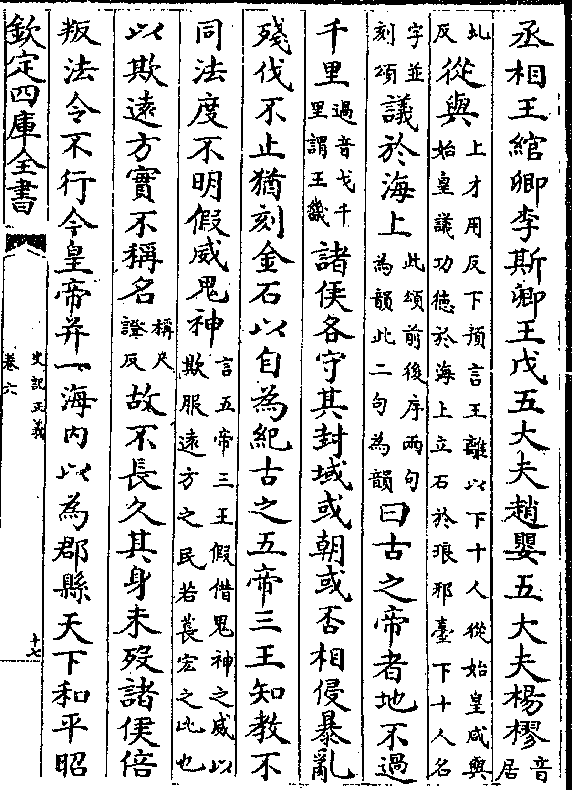 丞相王綰卿李斯卿王戊五大夫趙嬰五大夫楊樛音居
虬反從與上才用反下預言王離以下十人從始皇咸與始皇議功德於海上立石於琅邪臺下十人名
字並刻頌議於海上此頌前後序兩句為韻此二句為韻曰古之帝者地不過
千里過音戈千里謂王畿諸侯各守其封域或朝或否相侵暴亂
殘伐不止猶刻金石以自為紀古之五帝三王知教不
同法度不明假威鬼神言五帝三王假借鬼神之威以欺服遠方之民若萇宏之比也
以欺遠方實不稱名稱尺證反故不長久其身未歿諸侯倍
叛法令不行今皇帝并一海內以為郡縣天下和平昭
欽定四庫全書
史記正義
卷六
十七